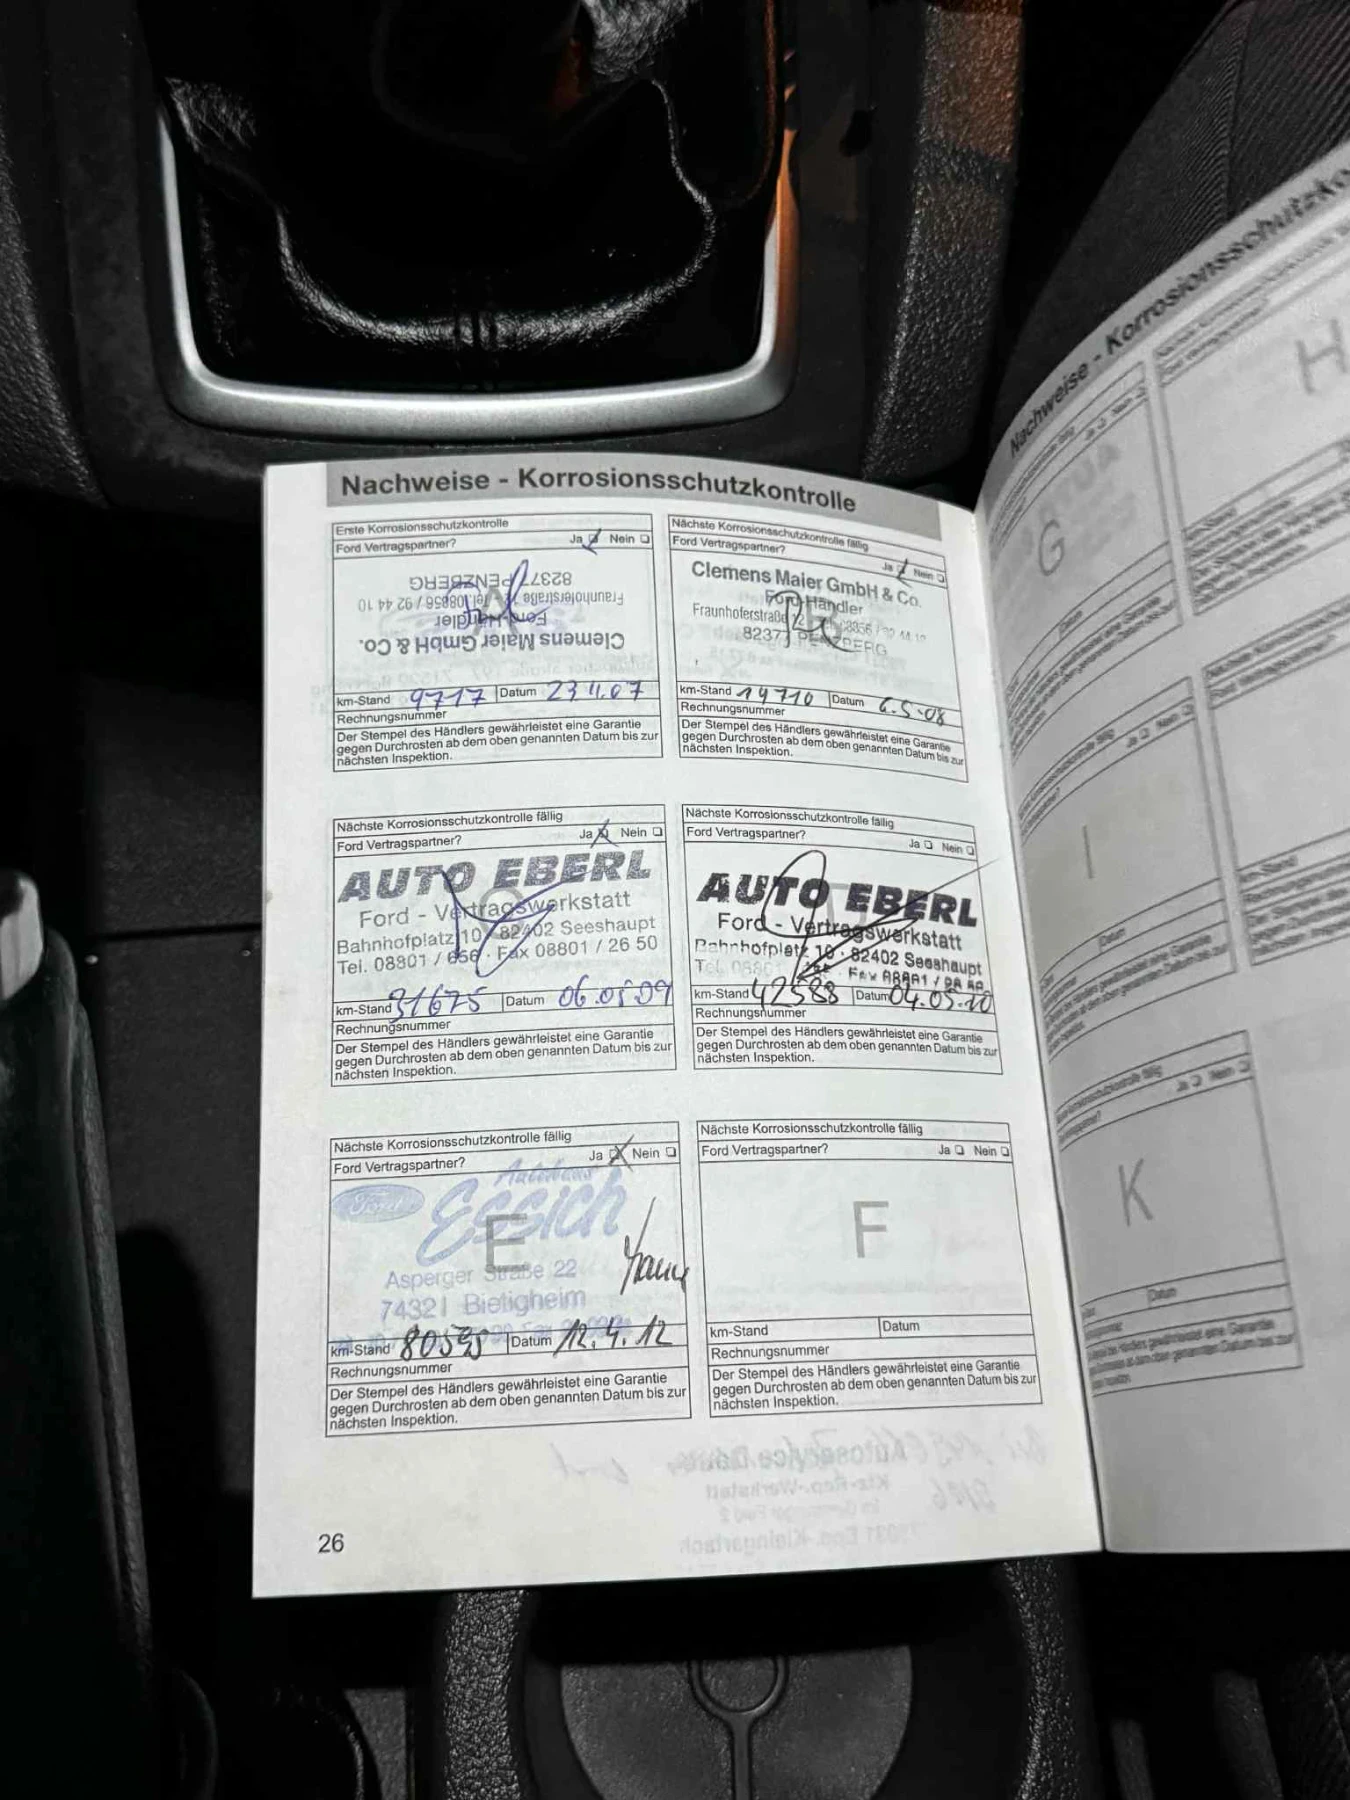 Nachweise - Korrosionsschutzkontrolle
Erste Korrosionsschutzkontrolle
Ford Vertragspartner? Ja Nein
Clemens Maier GmbH & Co.
Ford-Händler
Fraunhoferstraße Tel. 08856 / 92 44 10
82377 PENZBERG
km-Stand 9717 Datum 23.11.07
Rechnungsnummer
Der Stempel des Händlers gewährleistet eine Garantie
gegen Durchrosten ab dem oben genannten Datum bis zur
nächsten Inspektion.
Nächste Korrosionsschutzkontrolle fällig
Ford Vertragspartner? Ja Nein
Clemens Maier GmbH & Co.
Ford Händler
Fraunhoferstraße 12 08856 / 92 44 10
82377 PENZBERG
km-Stand 19710 Datum 6.5.08
Rechnungsnummer
Der Stempel des Händlers gewährleistet eine Garantie
gegen Durchrosten ab dem oben genannten Datum bis zur
nächsten Inspektion.
Nächste Korrosionsschutzkontrolle fällig
Ford Vertragspartner? Ja Nein
AUTO EBERL
Ford - Vertragswerkstatt
Bahnhofplatz 10 · 82402 Seeshaupt
Tel. 08801 / 656 · Fax 08801 / 26 50
km-Stand 31675 Datum 06.05.09
Rechnungsnummer
Der Stempel des Händlers gewährleistet eine Garantie
gegen Durchrosten ab dem oben genannten Datum bis zur
nächsten Inspektion.
Nächste Korrosionsschutzkontrolle fällig
Ford Vertragspartner? Ja Nein
AUTO EBERL
Ford - Vertragswerkstatt
Bahnhofplatz 10 · 82402 Seeshaupt
km-Stand 42588 Datum 04.05.10
Rechnungsnummer
Der Stempel des Händlers gewährleistet eine Garantie
gegen Durchrosten ab dem oben genannten Datum bis zur
nächsten Inspektion.
Nächste Korrosionsschutzkontrolle fällig
Ford Vertragspartner? Ja Nein
Autohaus
Ford Essich
E
Asperger Straße 22
74321 Bietigheim
km-Stand 80595 Datum 12.4.12
Rechnungsnummer
Der Stempel des Händlers gewährleistet eine Garantie
gegen Durchrosten ab dem oben genannten Datum bis zur
nächsten Inspektion.
Nächste Korrosionsschutzkontrolle fällig
Ford Vertragspartner? Ja Nein
F
km-Stand Datum
Rechnungsnummer
Der Stempel des Händlers gewährleistet eine Garantie
gegen Durchrosten ab dem oben genannten Datum bis zur
nächsten Inspektion.
26
Nachweise - Korrosionsschutzko
G
H
I
K